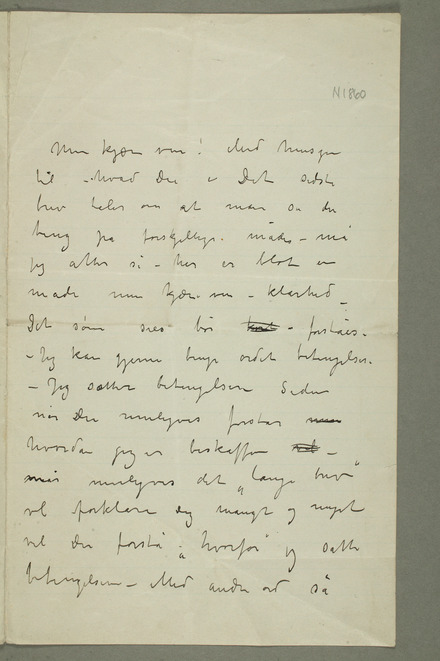 N1860
Min kjære ven! Med hensyn
til – hvad Du i Det sidste
brev taler om at man sa du
brug på forskjellige måder – må
jeg atter si – her er blot en
måde min kjære ven – klarhed –
Det som sies bør – forståes –
– Jeg kan gjerne bruge ordet betingelser.
– Jeg sætter betingelser Siden
når Du muligens forstår
hvordan jeg er beskaffen –
muligens det „lange brev"
vil forklare Dig mangt og meget
vil Du forstå – „hvorfor" jeg satte
betingelser – Med andre ord så